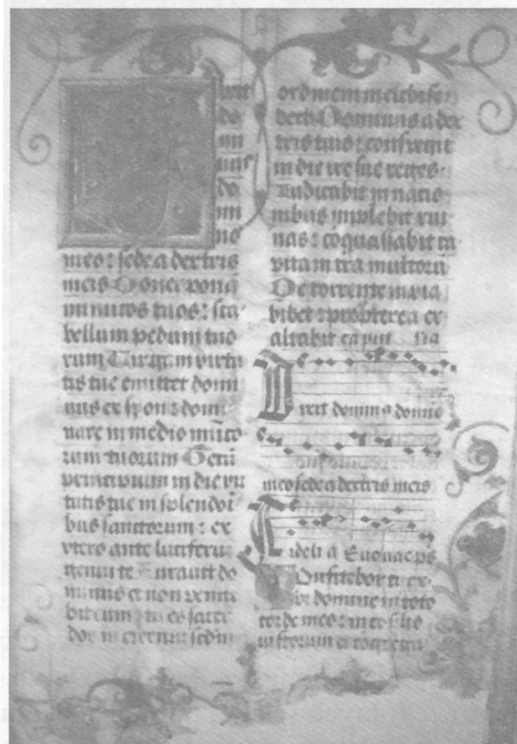 ixit
do
mi
nus
do
mi
no
meo: sede a dextris
meis Donec ponā
inimicos tuos: sca
bellum pedum tuo
rum Virgam virtu
tis tue emittet domi
nus ex syon: domi
nare in medio
tuorum Tecū
principium in die vir
tutis tue in splendori
bus sanctorum: ex
vtero ante luciferū
genui te Iurauit do
minus et non penite
bit eum: tu es sacer
dos in eternū secūn
ordinem melchise
dech Dominus a dex
tris tuis: confregit
in die ire sue reges
Iudicabit in natio
nibus implebit rui
nas: cōquassabit ca
pita in tra multorū
De torrente in via
bibet: propterea ex
altabit caput
Dixit dominꝰ domino
meo sede a dextris meis
Fideli a Euouae ps
Confitebor ti
bi domine in toto
corde meo: in cōsilio
iustorum et cōgrega